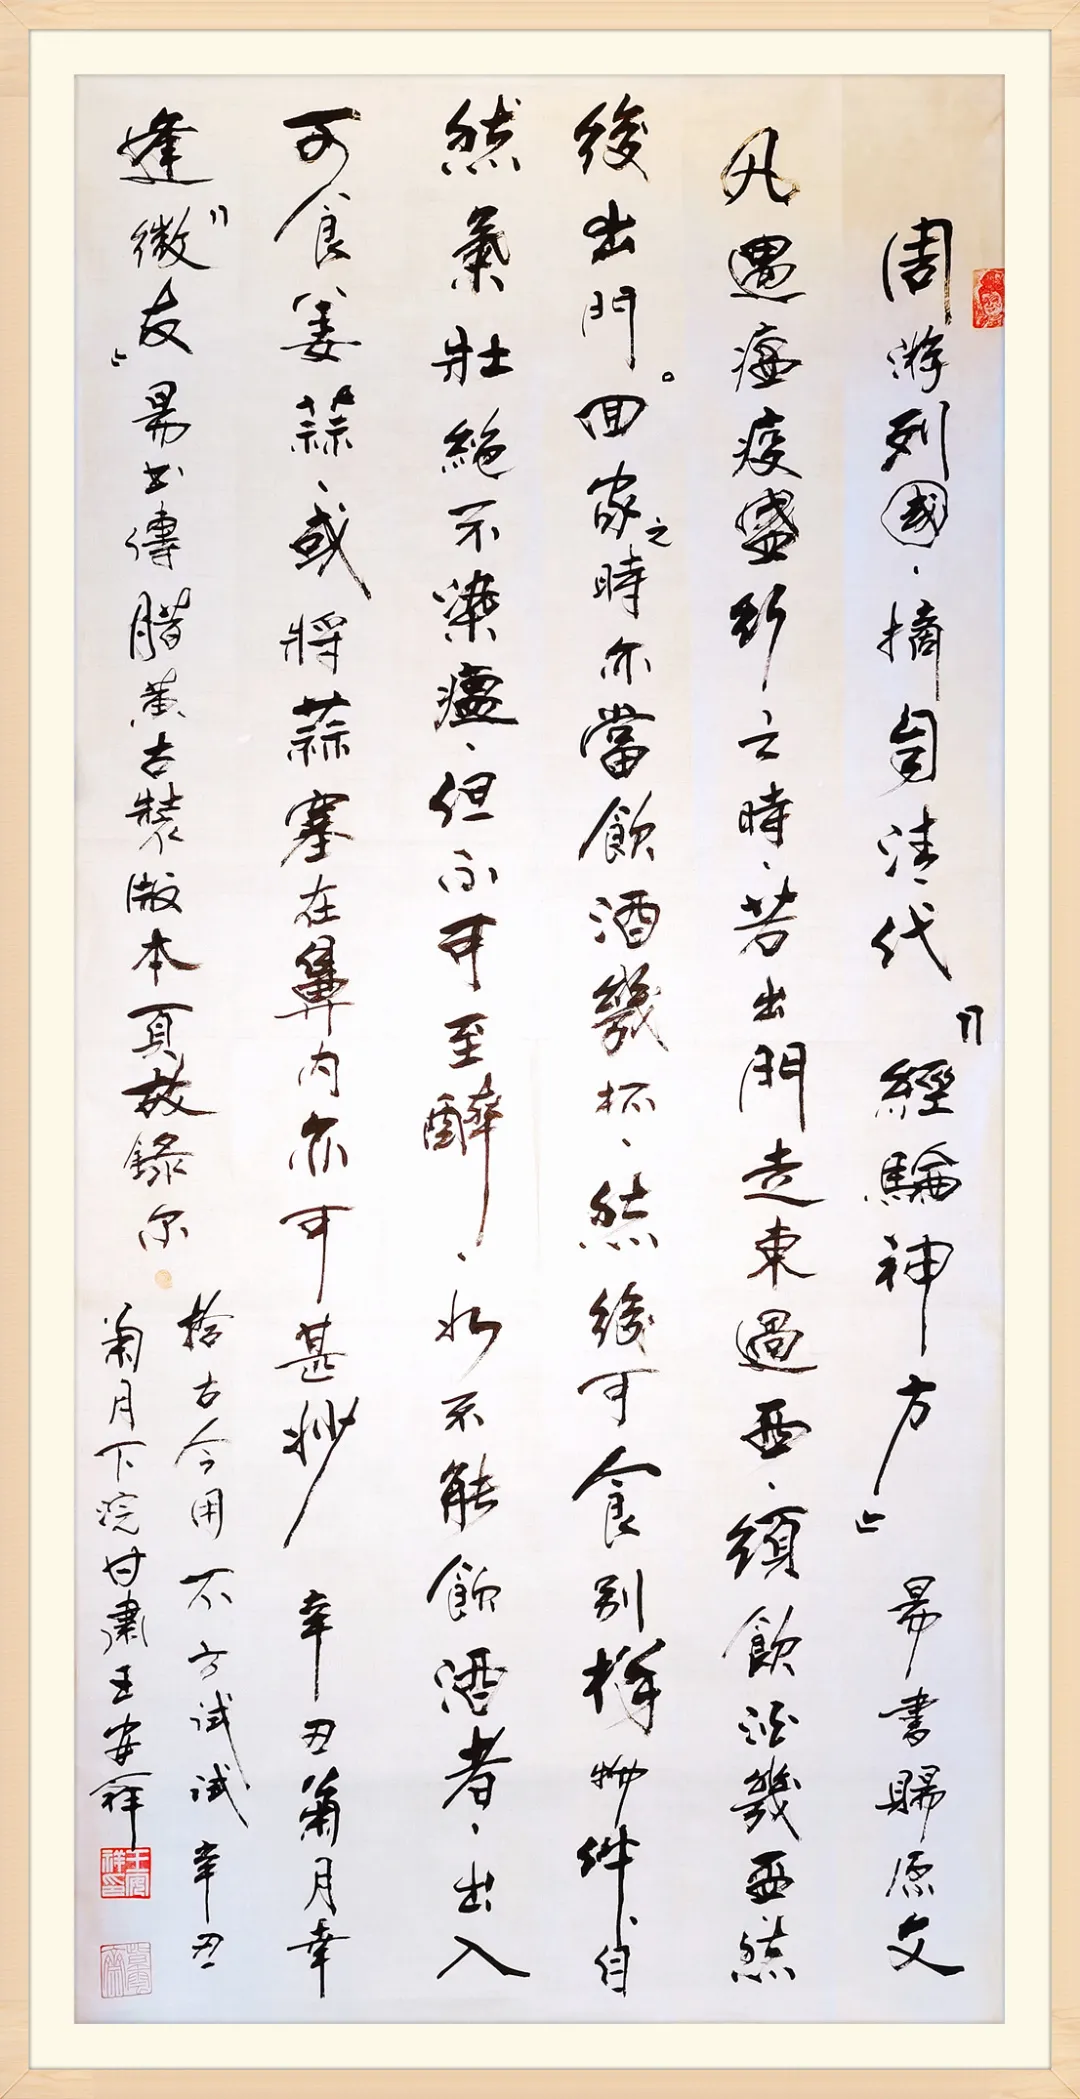 周游列國、摘自清代『經驗神方』易書賜原文
凡遇瘟疫盛行之時、若出門走東過西、須飲酒幾盃然
後出門。回家之時亦當飲酒幾杯、然後可食別樣物件、自
然氣壯絕不染瘟、但不可至醉、如不能飲酒者、出入
可食姜蒜、或將蒜塞在鼻內亦可甚妙 辛丑菊月幸
逢『微友』易书傳腊黃古裝散本頁故錄尔
拾古今用不方試試辛丑
菊月下浣甘肅王安祥
王安祥印